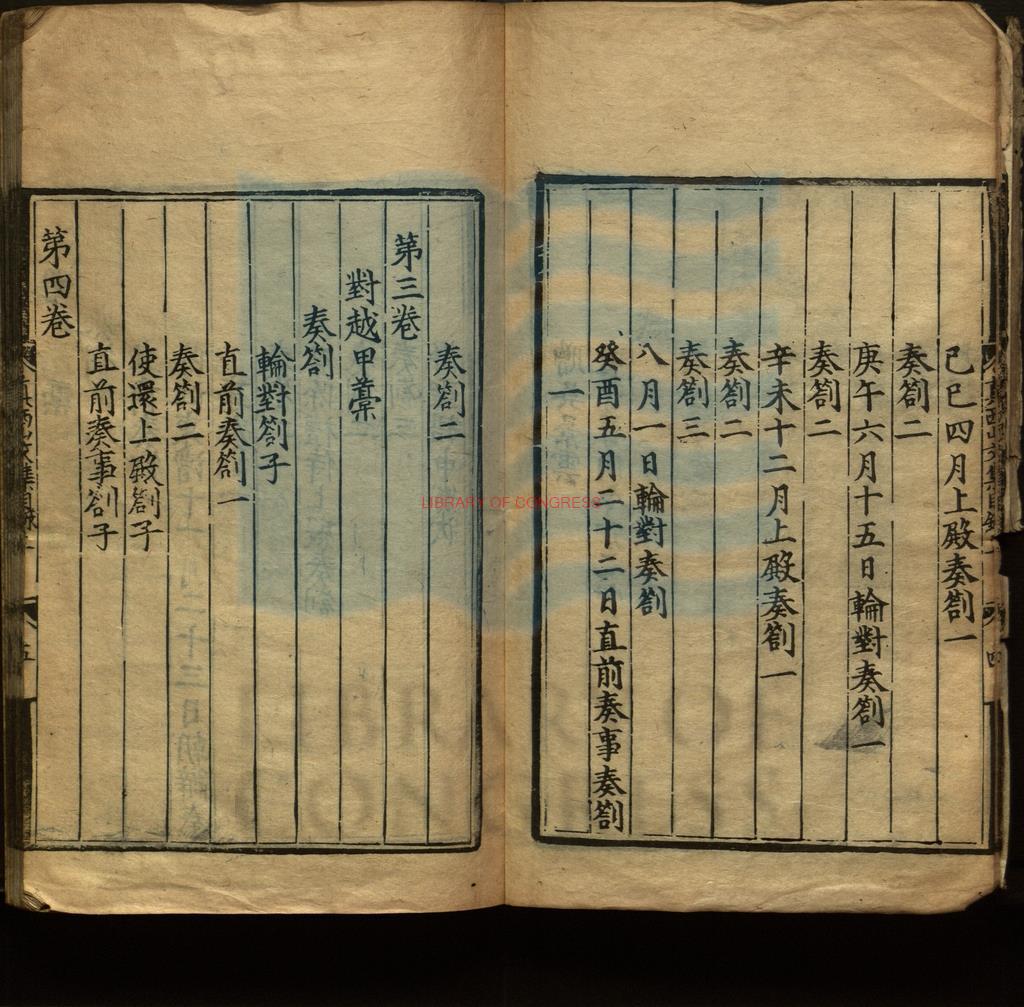 己巳四月上殿奏劄一
奏劄二
庚午六月十五日輪對奏劄一
奏劄二
辛未十二月上殿奏劄一
奏劄二
奏劄三
八月一日輪對奏劄
癸酉五月二十二日直前奏事奏劄
一
奏劄二
第三卷
對越甲藁
奏劄
輪對劄子
直前奏劄一
奏劄二
使還上殿劄子
直前奏事劄子
第四卷
四
五
LIBRARY OF CONGRESS